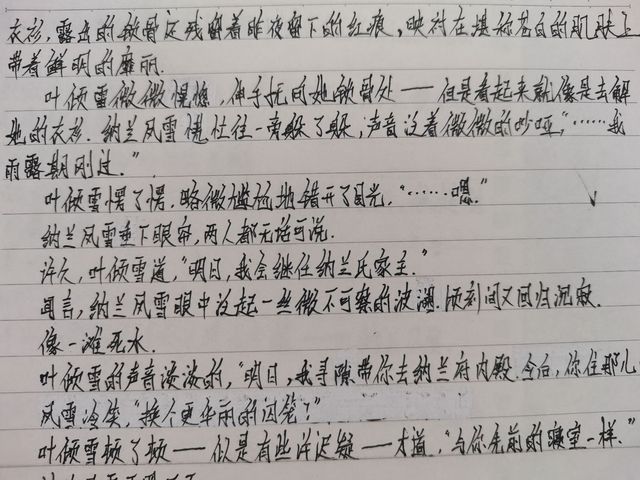 衣衫，露出的锁骨还残留着昨夜留下的红痕，映衬在堪称苍白的肌肤上
带着鲜明的靡丽.
叶倾雪微微恍惚，伸手抚向她锁骨处——但是看起来就像是去解
她的衣衫. 纳兰风雪惧怯往一旁躲了躲，声音没着微微的沙哑，“……我
雨露期刚过.”
叶倾雪愣了愣. 略微尴尬地错开了目光，“……嗯.”
纳兰风雪垂下眼帘，两人都无话可说.
许久，叶倾雪道，“明日，我会继任纳兰氏家主.”
闻言，纳兰风雪眼中泛起一丝微不可察的波澜. 顷刻间又回归沉寂.
像一滩死水.
叶倾雪的声音淡淡的，“明日，我寻隙带你去纳兰府内殿. 今后，你住那儿
风雪冷笑，“换个更华丽的囚笼？”
叶倾雪顿了顿——似是有些许迟疑——才道，“与你先前的寝室一样.”